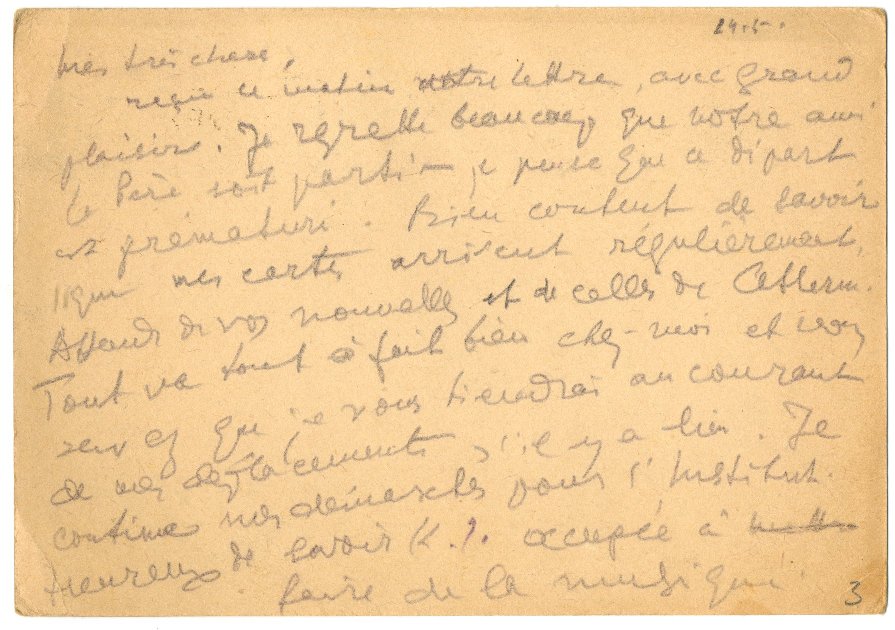 24.5.
Mes très chers,
reçu ce matin votre lettre, avec grand
plaisir. Je regrette beaucoup que notre ami
le Père soit parti - je pense que ce départ
est prématuré. Bien content de savoir
que mes cartes arrivent régulièrement,
Attends de vos nouvelles et de celles de
Tout va tout à fait bien chez-moi et
que je vous tiendrai au courant
de mes déplacements s'il y a lieu. Je
continue mes démarches pour l'Institut.
Heureux de savoir K.). occupée à
faire de la musique.
3